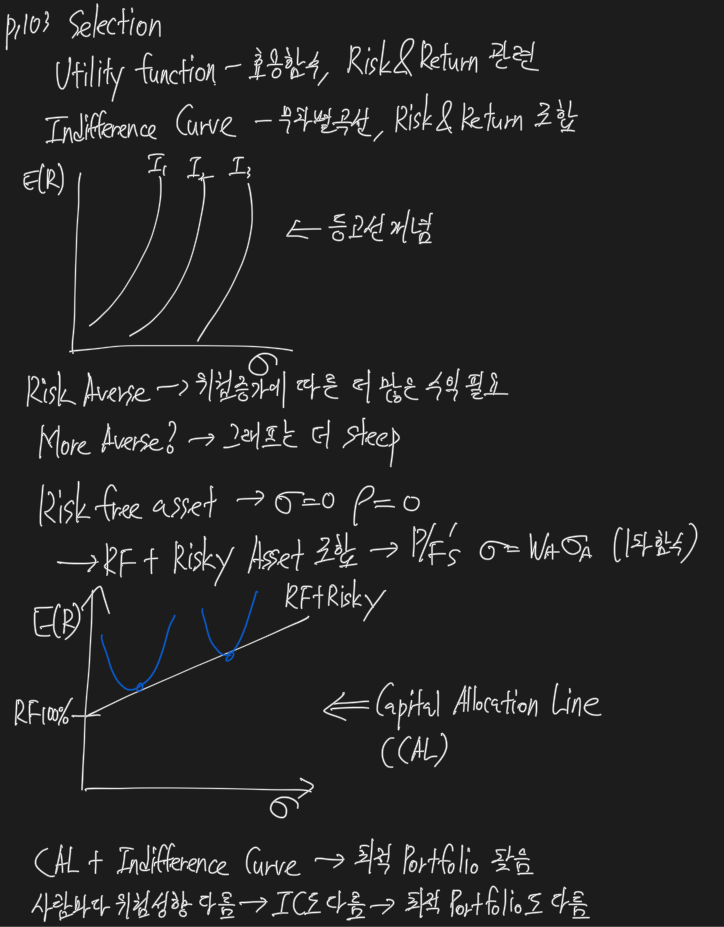 p.103 Selection
Utility function - 효용함수, Risk & Return 관련
Indifference Curve - 무차별곡선, Risk & Return 조합
E(R)
I₁ I₂ I₃
⇐ 등고선 개념
σ
Risk Averse → 위험증가에 따른 더 많은 수익 필요
More Averse? → 그래프는 더 steep
Risk free asset → σ=0 ρ=0
→ RF + Risky Asset 조합 → P/F's σ = WAσA (1차함수)
E(R)
RF+Risky
RF100%
⇐ Capital Allocation Line
(CAL)
σ
CAL + Indifference Curve → 최적 Portfolio 찾음
사람마다 위험성향 다름 → IC도 다름 → 최적 Portfolio도 다름